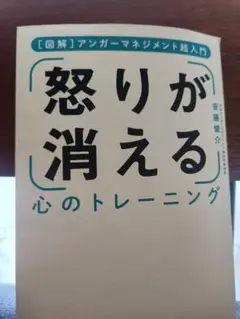 [図解]アンガーマネジメント超入門
怒りが
消える
心のトレーニング
安藤俊介